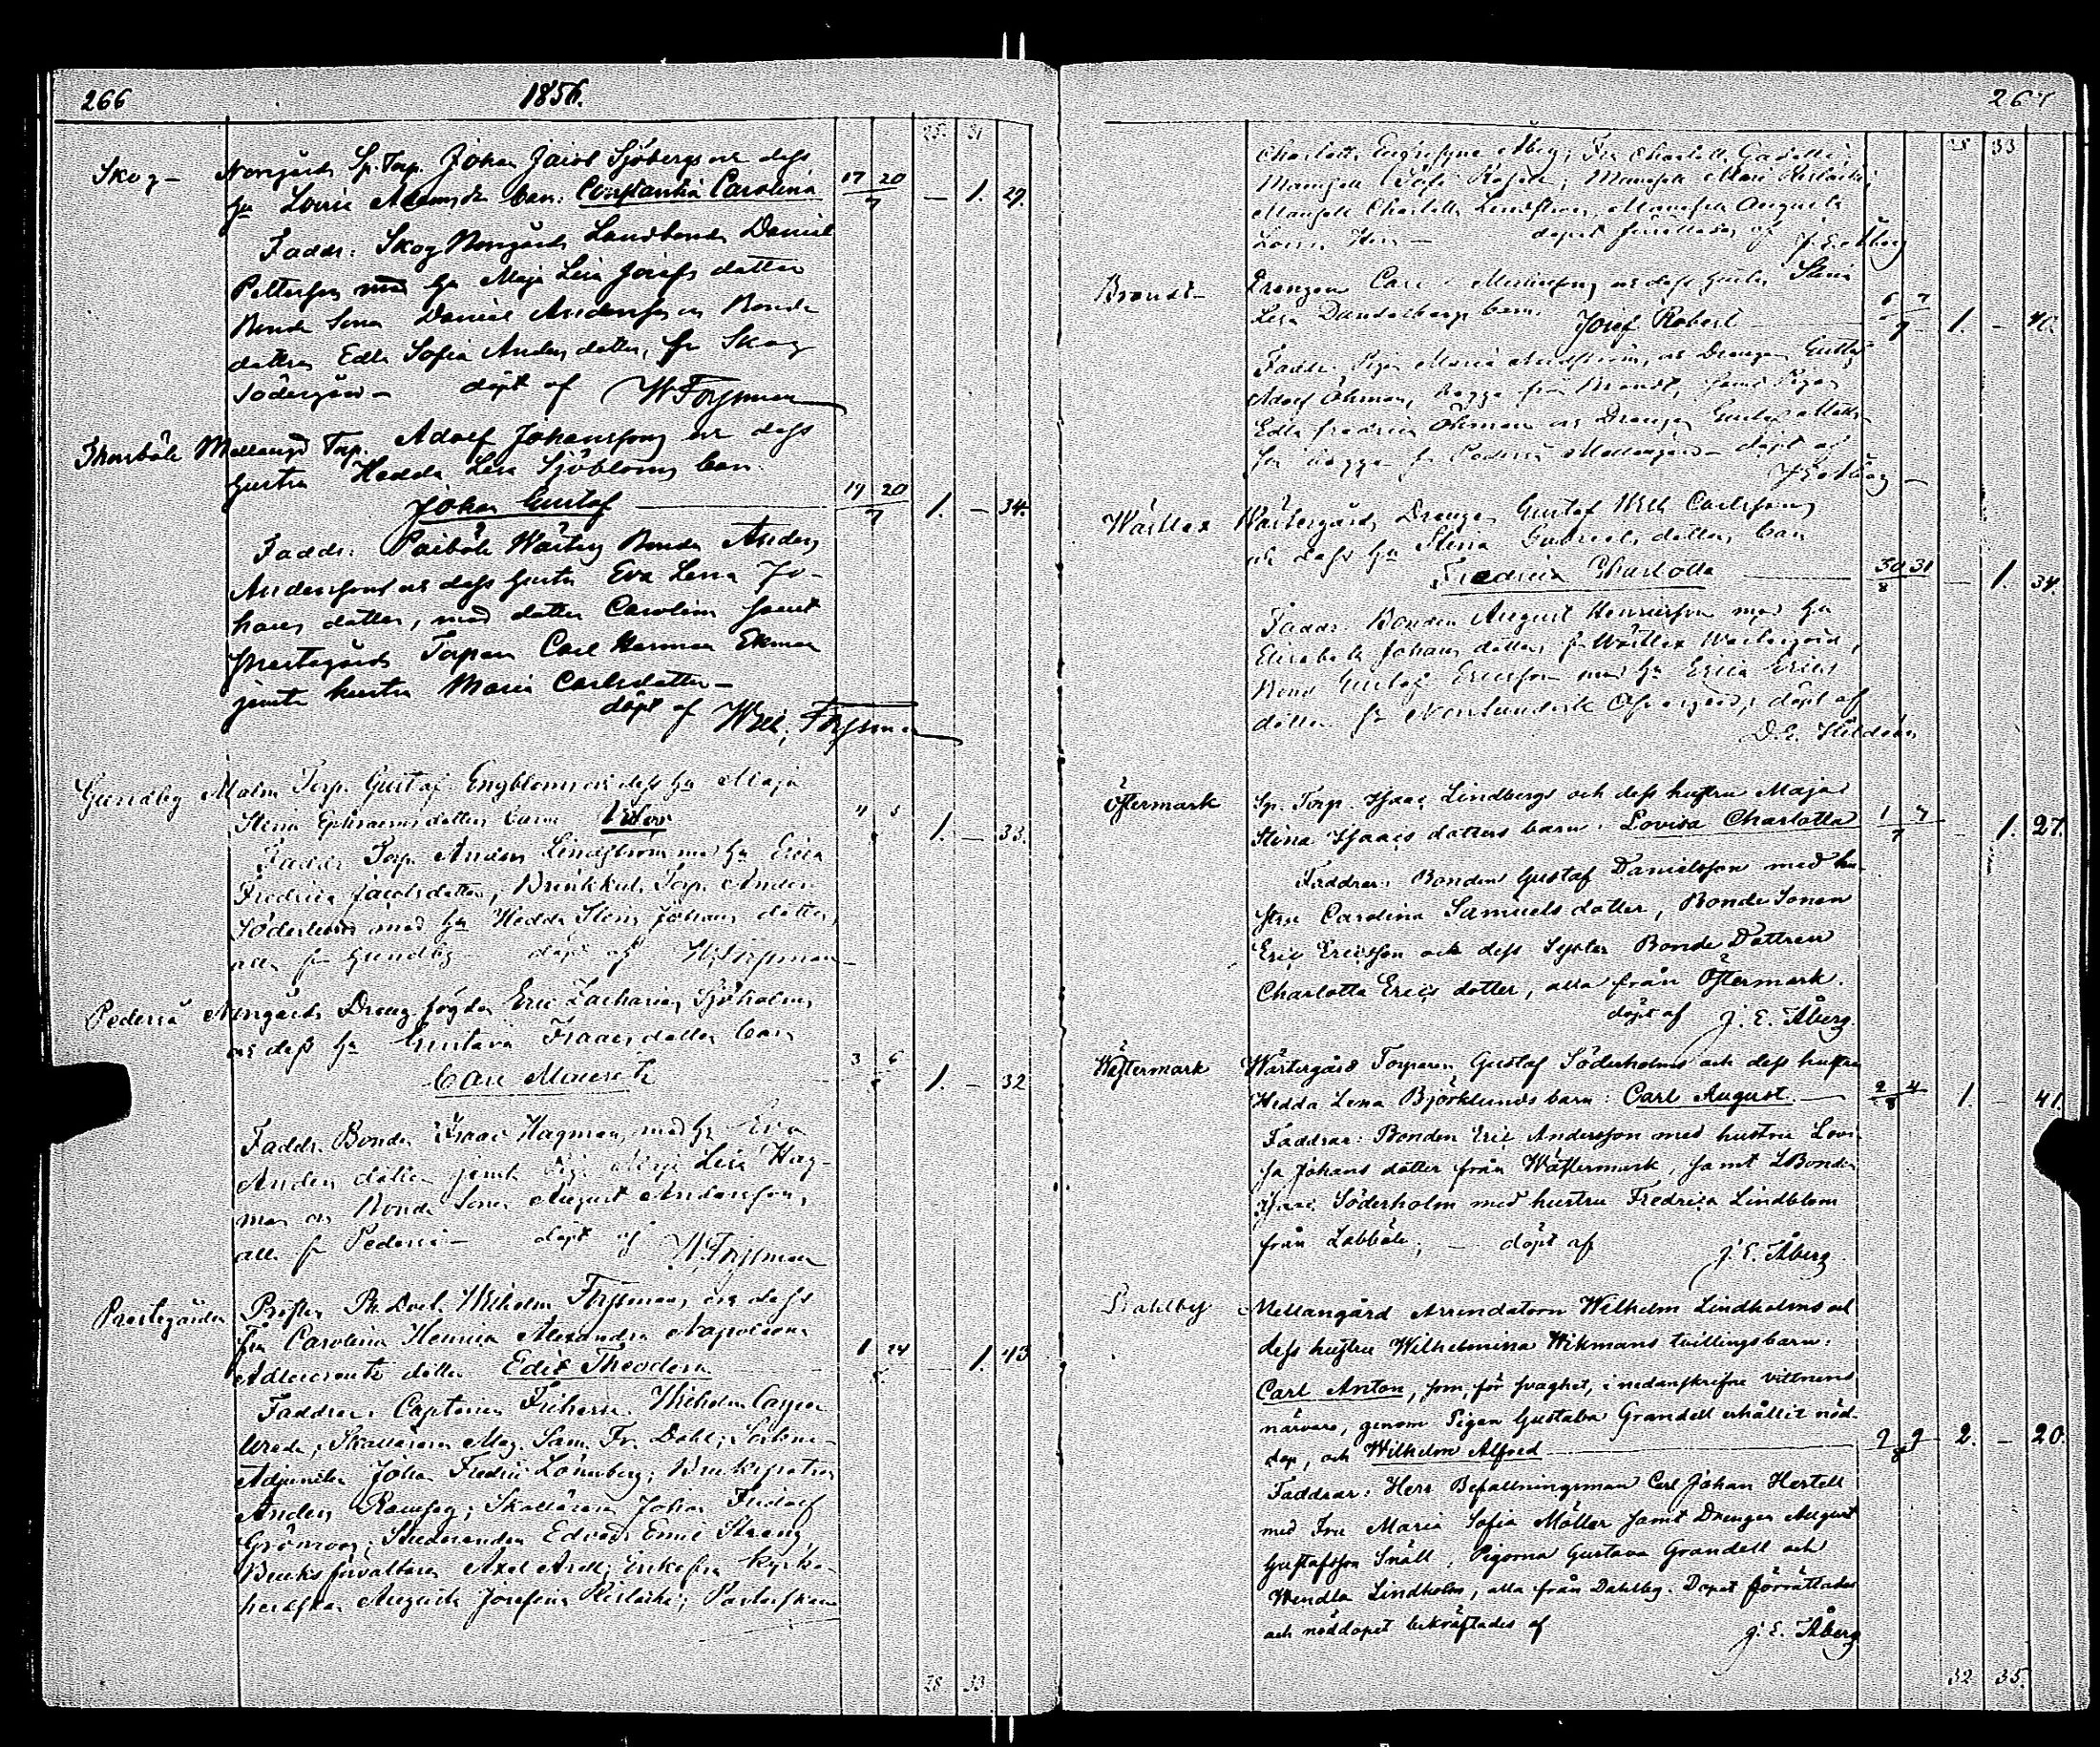 266
1856.
25. 31
Skog - Norrgårds Sp. Torp. Johan Jacob Sjöbergs och dess
hu Lovisa Adamsdr barn: Constantia Carolina 17 20 7 — 1. 29.
Faddr: Skog Norrgårds Landbonde Daniel
Pettersson med hu Maja Lisa Josefs dotter
Bonde Sonen Daniel Andersson os Bonde
dottren Edla Sofia Anders dotter, fr Skog
Södergård - döpt af W Forssman
Mellangd Torp. Adolf Johanssons och dess
hustru Hedda Lisa Sjöbloms barn
Johan Gustaf — 19 20 7 1. — 34.
Faddr: Paiböle Wästerg Bonde Anders
Andersson och dess hustru Eva Lena Jo-
hans dotter, med dotter Carolina samt
Prestegårds Torparen Carl Herman Ekman
jemte hustru Maria Carlsdotter -
döpt af Wilh. Forssman
Gundby Malm Torp. Gustaf Engbloms och dess hu Maja
Stina Ephraims dotters barn Victor 4 5 1. — 33.
Faddr Torp. Anders Lindström med hu Erica
Fredrica Jacobsdotter, Torp. Anders
Söderlund med hu Hedda Stina Johans dotter,
alla fr Gundby - döpt af W. Forssman
Pederså Norrgårds Dreng fogden Eric Zacharias Sjöholms
och dess hu Gustava Isaacs dotters barn
Carl Mauritz 3 6 1. — 32
Faddr. Bonden Isaac Hagman, med hu Eva
Anders dotter jemte Pig. Maja Lisa Hag-
man os Bonde Sonen August Andersson,
alla fr Pederså - döpt af W. Forssman
Prestegården Prosten Ph. Doct. Wilhelm Forssmans och dess
fru Carolina Henrica Alexandra Napoleona
Adlercreutz dotter Edit Theodora 1 24 — 1. 43
Faddrar. Captenen Friherre Wilhelm Casper
Wrede, Skolläraren Mag. Sam. Fr. Dahl; Sockne-
Adjuncten Johan Fredric Lönnberg; Brukspatron
Anders Ramsay; Skolläraren Johan Fridolf
Grönroos; Studeranden Edvard Emil Strang
Bruks förvaltaren Axel Arell; Enkefru Kyrko-
herdskan Augusta Josefina; Pastorskan
28 33
267
28 33
Charlotta Eugenia Åberg; Fru Charlotta Gadelli;
Mamsell Sofi; Mamsell Mari;
Mamsell Charlotta Lindström, Mamsell Augusta
Lovisa — dopet förrättades af J. E. Åberg
Brandt Drengen Carl och dess hustru Stina
Lisa barn Josef Robert — 6 7 7 1. — 40.
Faddr. Pigan Maria, os Drengen Gustaf
Adolf Öhman, begge från Brandt, samt Pigan
Edla Fredrica Öhman os Drengen Gustaf Matts-
son begge fr Pederså Mellangård - döpt af
J E Åberg
Wästlax Wästergårds Drengen Gustaf Wilh Carlssons
och dess hu Stina Gabriels dotters barn
Fredrica Charlotta — 30 31 8 — 1. 34.
Faddr. Bonden August Henricsson med hu
Elisabeth Johans dotter fr Wästlax Wästergård,
Bond Gustaf Ericsson med hu Erica Erics
dotter fr Norrlandet, döpt af
D. E. Hildén
Östermark Sp. Torp. Isaac Lindbergs och dess hustru Maja
Stina Isaacs dotters barn: Lovisa Charlotta 1 7 7 — 1. 27.
Faddrar: Bonden Gustaf Danielsson med hu-
stru Carolina Samuels dotter, Bonde Sonen
Eric Ericsson och dess Syster Bonde Dottren
Charlotta Erics dotter, alla från Östermark.
döpt af J. E. Åberg.
Wästermark Wästergård Torparen Gustaf Söderholms och dess hustru
Hedda Lena Björklunds barn: Carl August. — 2 4 8 1. — 41.
Faddrar: Bonden Eric Andersson med hustru Lovi-
sa Johans dotter från Wästermark, samt LBonden
Isaac Söderholm med hustru Fredrica Lindblom
från Labböle; — döpt af J. E. Åberg.
Dahlby Mellangård Arrendatorn Wilhelm Lindholms och
dess hustru Wilhelmina Wikmans tvillingsbarn:
Carl Anton, som, för svaghet, i nedanskrifne vittnens
närvaro, genom Pigan Gustava Grandell erhållit nöd-
dop, och Wilhelm Alfred — 9 9 8 2. — 20.
Faddrar: Herr Befallningsman Carl Johan Hertell
med Fru Maria Sofia Möller samt Drengen August
Gustafsson Snäll, Pigorna Gustava Grandell och
Wendla Lindholm, alla från Dahlby. Dopet förrättades
och nöddopet bekräftades af J. E. Åberg
32 35.